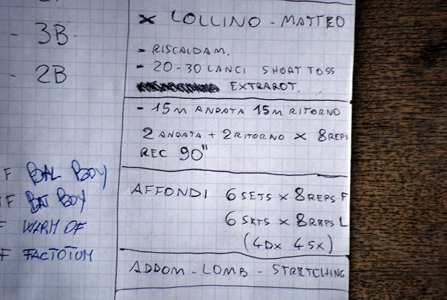 - 3B
- 2B
F BALL BOY
F BAT BOY
F WARM OF
F FACTOTUM
x LOLLINO - MATTEO
- RISCALDAM.
- 20-30 LANCI SHORT TOSS
EXTRAROT.
- 15M ANDATA 15M RITORNO
2 ANDATA + 2 RITORNO x 8 REPS
REC 90"
AFFONDI 6 SETS x 8 REPS F
6 SETS x 8 REPS L
(4DX 4SX)
ADDOM - LOMB - STRETCHING